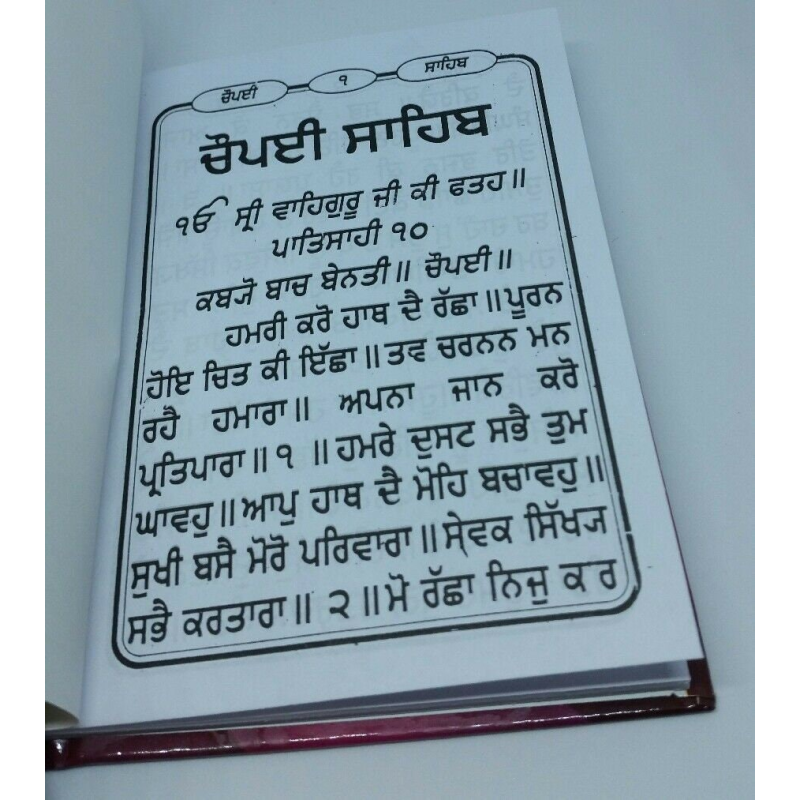 ਚੌਪਈ ੧ ਸਾਹਿਬ
ਚੌਪਈ ਸਾਹਿਬ
ੴ ਸ੍ਰੀ ਵਾਹਿਗੁਰੂ ਜੀ ਕੀ ਫਤਹ॥
ਪਾਤਿਸਾਹੀ ੧੦
ਕਬ੍ਯੋ ਬਾਚ ਬੇਨਤੀ॥ ਚੌਪਈ॥
ਹਮਰੀ ਕਰੋ ਹਾਥ ਦੈ ਰੱਛਾ॥ਪੂਰਨ
ਹੋਇ ਚਿਤ ਕੀ ਇੱਛਾ॥ਤਵ ਚਰਨਨ ਮਨ
ਰਹੈ ਹਮਾਰਾ॥ ਅਪਨਾ ਜਾਨ ਕਰੋ
ਪ੍ਰਤਿਪਾਰਾ॥੧ ॥ਹਮਰੇ ਦੁਸਟ ਸਭੈ ਤੁਮ
ਘਾਵਹੁ॥ਆਪੁ ਹਾਥ ਦੈ ਮੋਹਿ ਬਚਾਵਹੁ॥
ਸੁਖੀ ਬਸੈ ਮੋਰੋ ਪਰਿਵਾਰਾ॥ਸੇ੍ਵਕ ਸਿੱਖ੍ਯ
ਸਭੈ ਕਰਤਾਰਾ॥ ੨ ॥ਮੋ ਰੱਛਾ ਨਿਜੁ ਕਰ